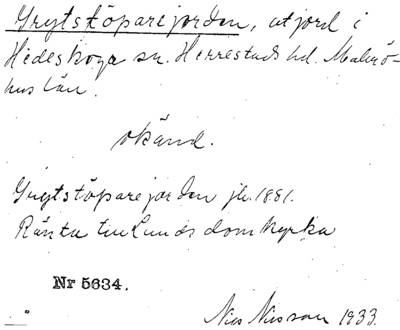 Grytstöparejorden, utjord i
Hedeskoga sn. Herrestads hd. Malmö-
hus län.
okänd.
Grytstöparejorden jb. 1881.
Ränta till Lunds domkyrka
Nr 5634.
Nils Nilsson 1933.